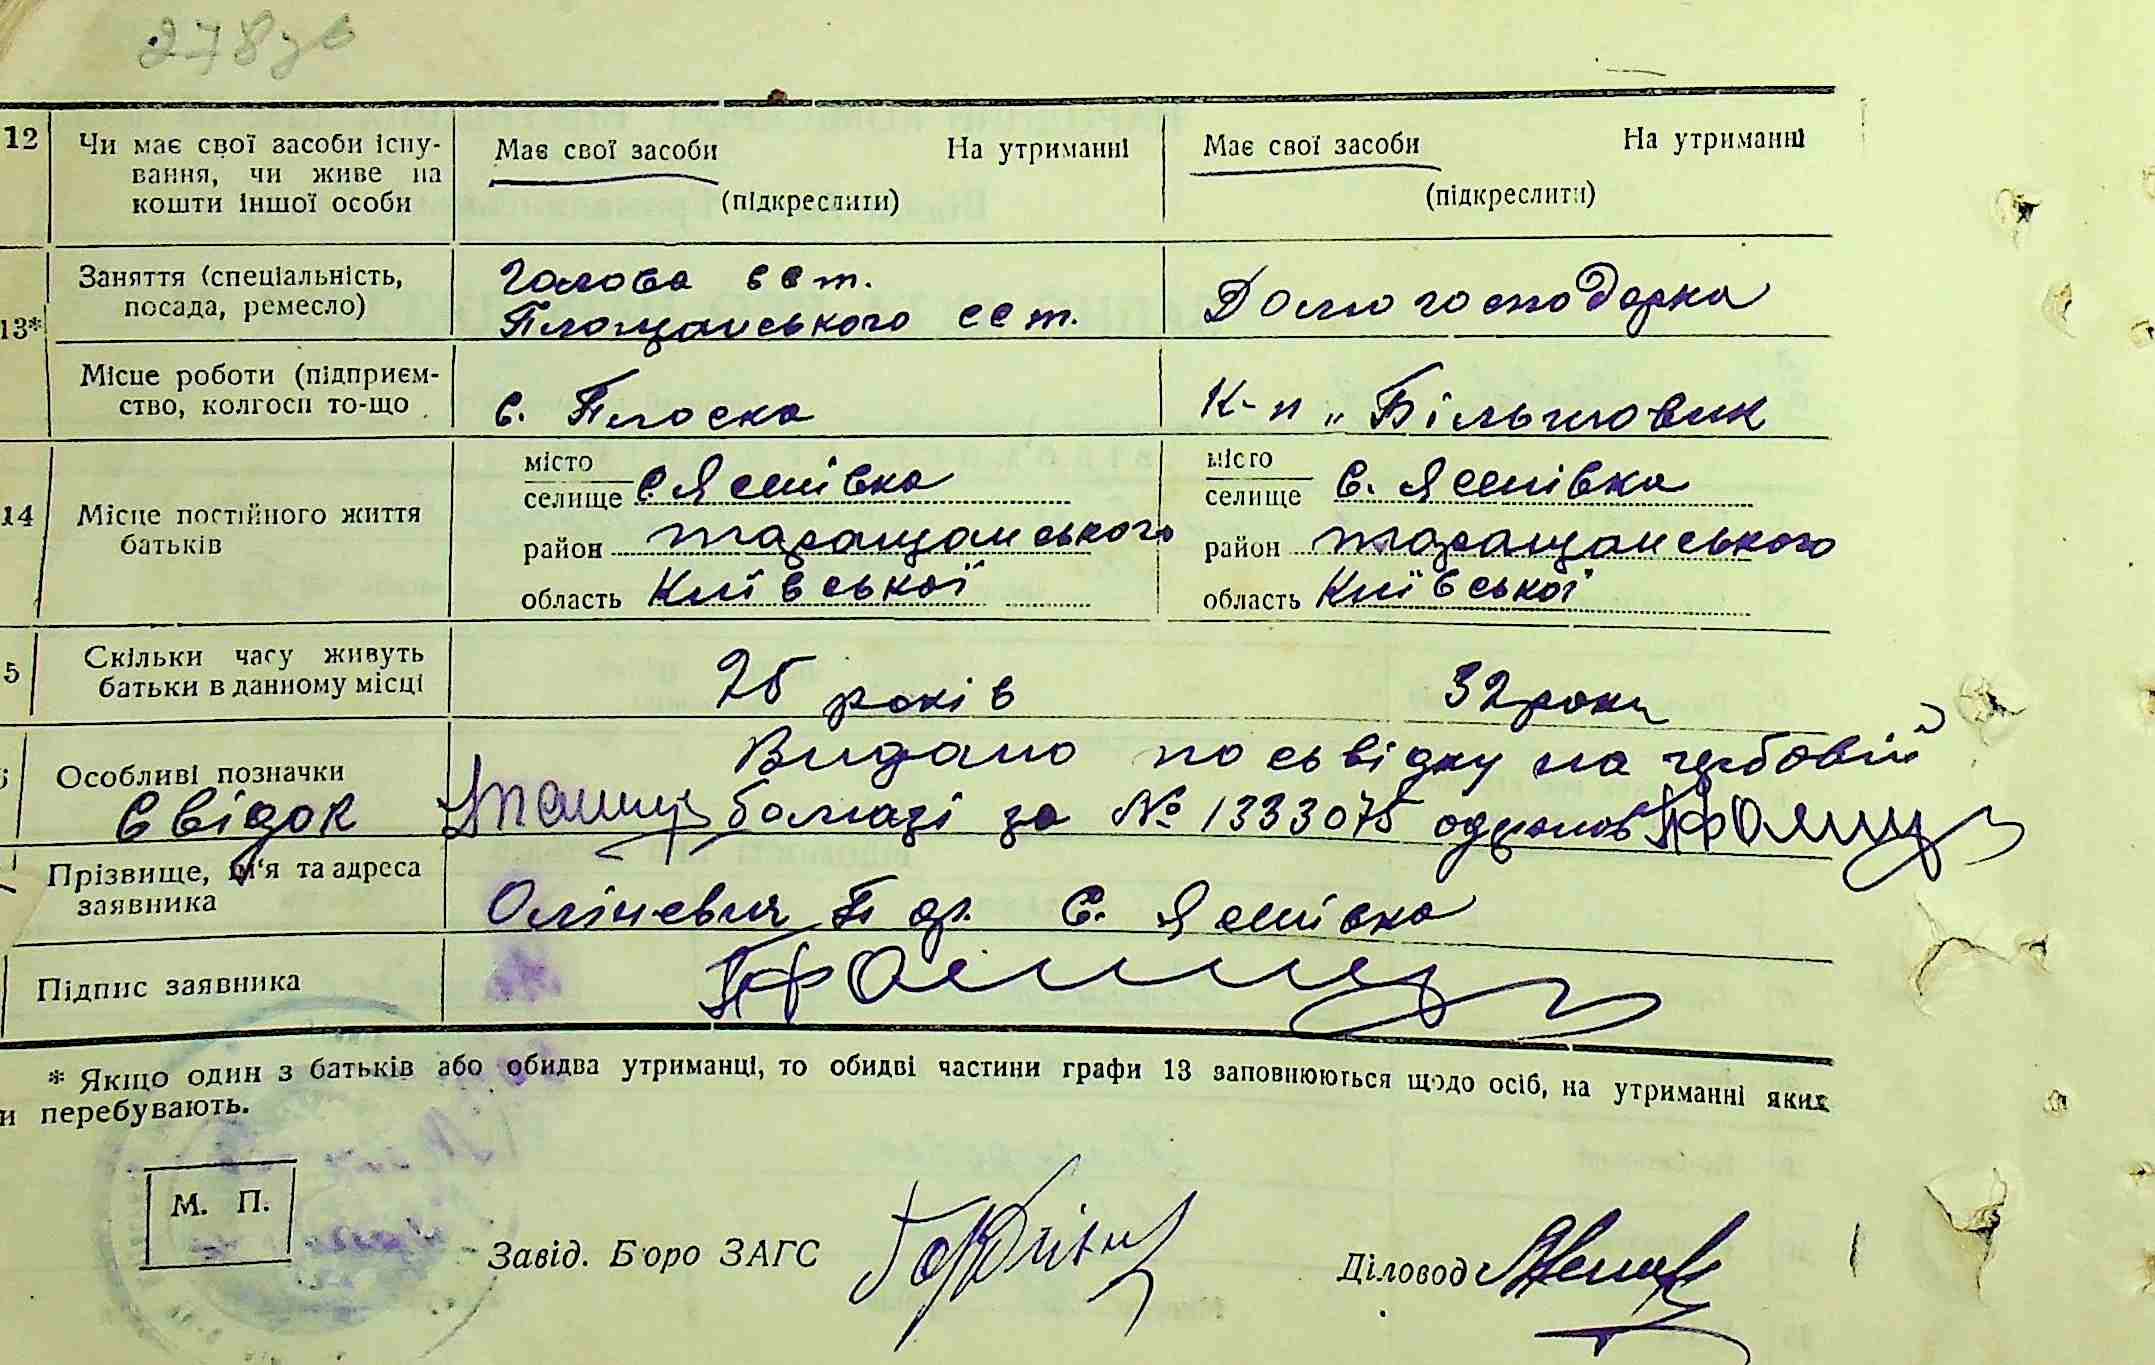 278зв
12 Чи має свої засоби існу-
вання, чи живе на
кошти іншої особи
Має свої засоби На утриманні
(підкреслити)
Має свої засоби На утриманні
(підкреслити)
13* Заняття (спеціальність,
посада, ремесло)
Голова ест.
Площанського ест.
Домогосподарка
Місце роботи (підприєм-
ство, колгосп то-що
с. Плоска
К-п „Більшовик
14 Місце постійного життя
батьків
місто
селище с. Яснівка
район таращанського
область Київської
місто
селище с. Яснівка
район таращанського
область Київської
5 Скільки часу живуть
батьки в данному місці
25 років
32 роки
Особливі позначки
Видано посьвідку на гербовій
Свідок
бомазі за № 1333075 одержав
Прізвище, ім'я та адреса
заявника
с. Яснівка
Підпис заявника
* Якщо один з батьків або обидва утриманці, то обидві частини графи 13 заповнюються щодо осіб, на утриманні яких
и перебувають.
М. П.
Завід. Бюро ЗАГС
Діловод